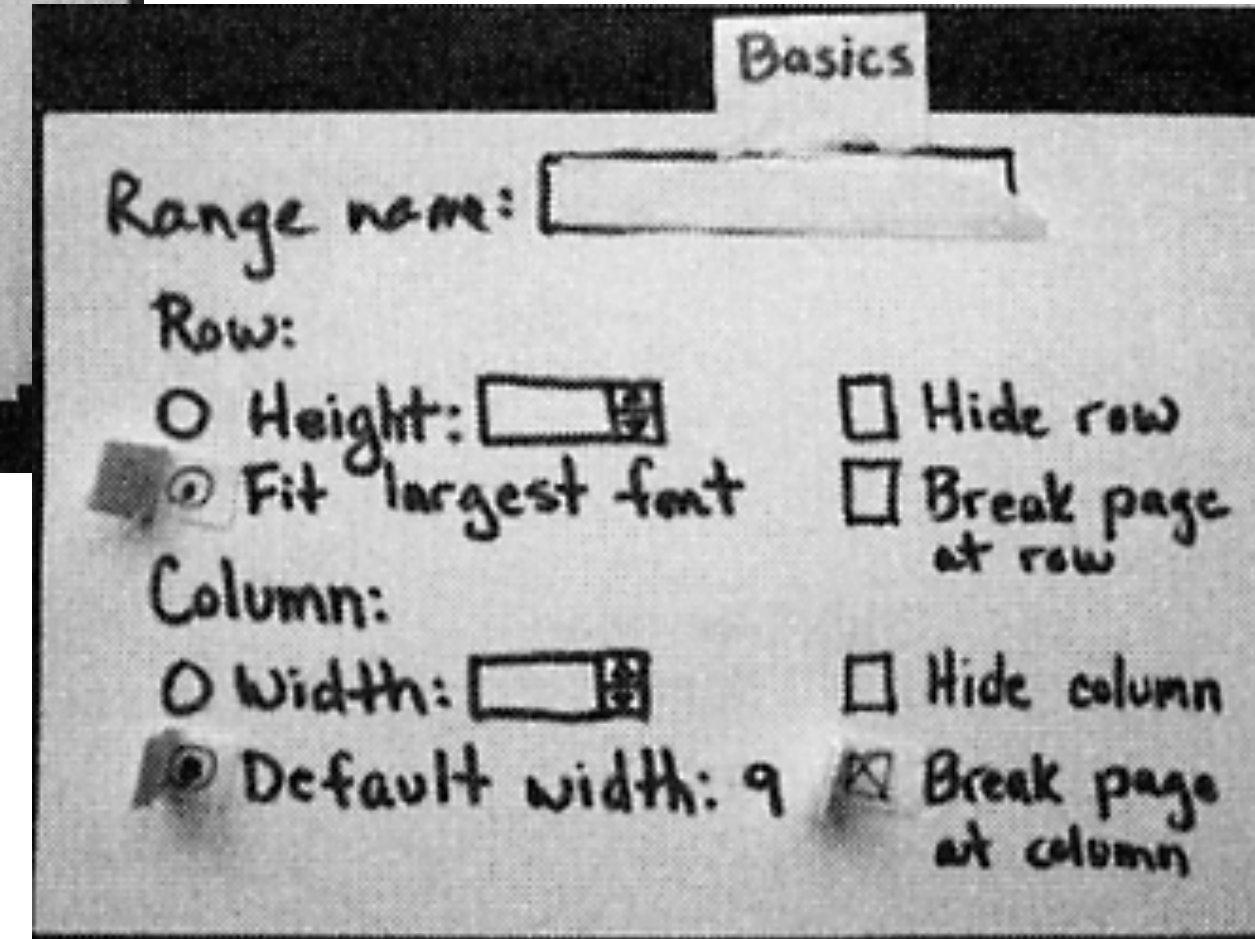 Basics
Range name:
Row:
Height:
Hide row
Fit largest font
Break page
at row
Column:
Width:
Hide column
Default width: 9
Break page
at column